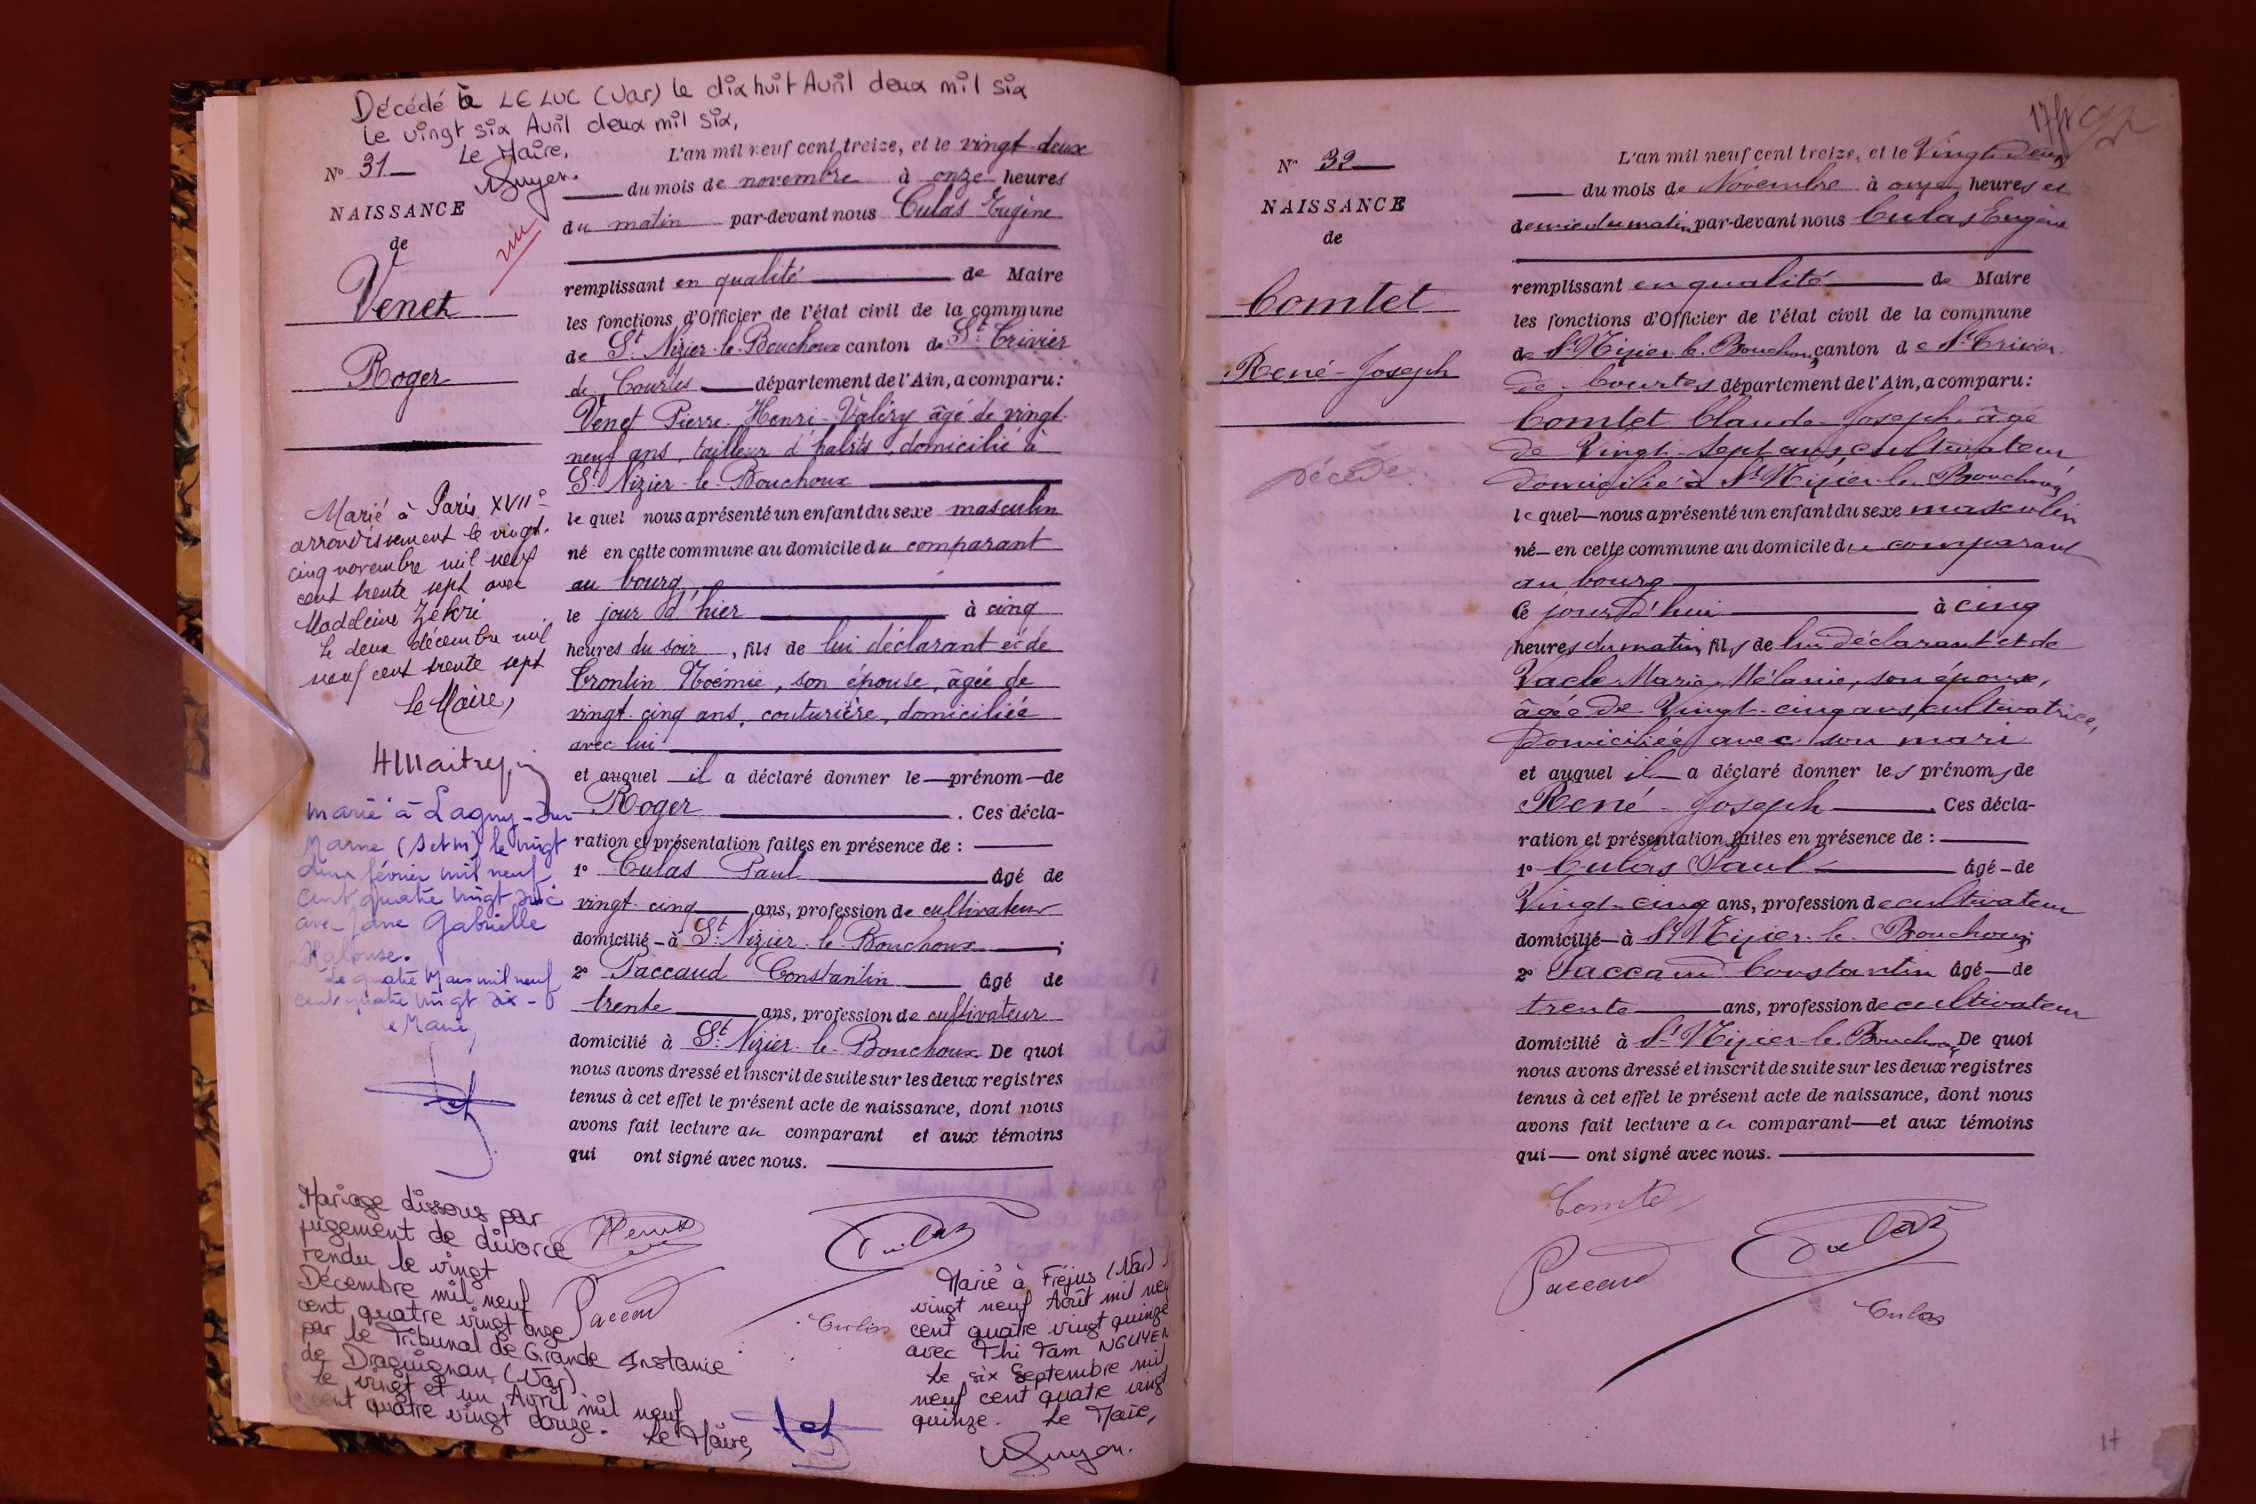 Décédé à LE LUC (Var) le dix huit Avril deux mil six
le vingt six Avril deux mil six,
Le Maire,
N° 31
NAISSANCE
de
Venet
Roger
L'an mil neuf cent treize, et le vingt-deux
du mois de novembre à onze heures
du matin par-devant nous Culas Eugène
remplissant en qualité de Maire
les fonctions d'Officier de l'état civil de la commune
de St Nizier-le-Bouchoux canton de St Trivier
de Courtes département de l'Ain, a comparu:
Venet Pierre-Henri-Valéry âgé de vingt
neuf ans, tailleur d'habits, domicilié à
St Nizier-le-Bouchoux
le quel nous a présenté un enfant du sexe masculin
né en cette commune au domicile du comparant
au bourg,
le jour d'hier à cinq
heures du soir, fils de lui déclarant et de
Tronlin Noémie, son épouse, âgée de
vingt-cinq ans, couturière, domiciliée
avec lui
et auquel il a déclaré donner le prénom de
Roger. Ces décla-
ration et présentation faites en présence de :
1° Culas Paul âgé de
vingt-cinq ans, profession de cultivateur
domicilié à St Nizier-le-Bouchoux;
2° Paccaud Constantin âgé de
trente ans, profession de cultivateur
domicilié à St Nizier-le-Bouchoux. De quoi
nous avons dressé et inscrit de suite sur les deux registres
tenus à cet effet le présent acte de naissance, dont nous
avons fait lecture au comparant et aux témoins
qui ont signé avec nous.
Marié à Paris XVIIe
arrondissement le vingt-
cinq novembre mil neuf
cent trente sept avec
Madeleine Zékri
le deux décembre mil
neuf cent trente sept
Le Maire,
marié à Lagny-sur
Marne (Set M) le vingt
deux février mil neuf
cent quatre vingt dix
avec Jane Gabrielle
Le quatre Mars mil neuf
cent quatre vingt dix-
le Maire,
Mariage dissous par
jugement de divorce
rendu le vingt
Décembre mil neuf
cent quatre vingt onze
par le Tribunal de Grande Instance
de Draguignan (Var)
Le vingt et un Avril mil neuf
cent quatre vingt douze.
Le Maire,
Venet
Culas
Paccaud
Culas
Marié à Fréjus (Var)
vingt neuf Août mil neu
cent quatre vingt quinze
avec Thi Tam NGUYEN
Le six Septembre mil
neuf cent quatre vingt
quinze. Le Maire,
N° 32
NAISSANCE
de
Comtet
René-Joseph
Décédé
L'an mil neuf cent treize, et le Vingt-deux
du mois de Novembre à onze heures et
demie du matin, par-devant nous Culas Eugène
remplissant en qualité de Maire
les fonctions d'Officier de l'état civil de la commune
de St Nizier-le-Bouchoux, canton de St Trivier
de Courtes département de l'Ain, a comparu:
Comtet Claude-Joseph, âgé
de Vingt-sept ans, cultivateur
domicilié à St Nizier-le-Bouchoux,
le quel nous a présenté un enfant du sexe masculin
né en cette commune au domicile du comparant
au bourg
ce jourd'hui à cinq
heures du matin, fils de lui déclarant et de
Vacle Marie-Mélanie, son épouse,
âgée de Vingt-cinq ans, cultivatrice,
domiciliée avec son mari
et auquel il a déclaré donner les prénoms de
René-Joseph. Ces décla-
ration et présentation faites en présence de :
1° Culas Paul âgé de
Vingt-cinq ans, profession de cultivateur
domicilié à St Nizier-le-Bouchoux;
2° Paccaud Constantin âgé de
trente ans, profession de cultivateur
domicilié à St Nizier-le-Bouchoux, De quoi
nous avons dressé et inscrit de suite sur les deux registres
tenus à cet effet le présent acte de naissance, dont nous
avons fait lecture au comparant et aux témoins
qui ont signé avec nous.
Comtet
Paccaud
Culas
Culas
17